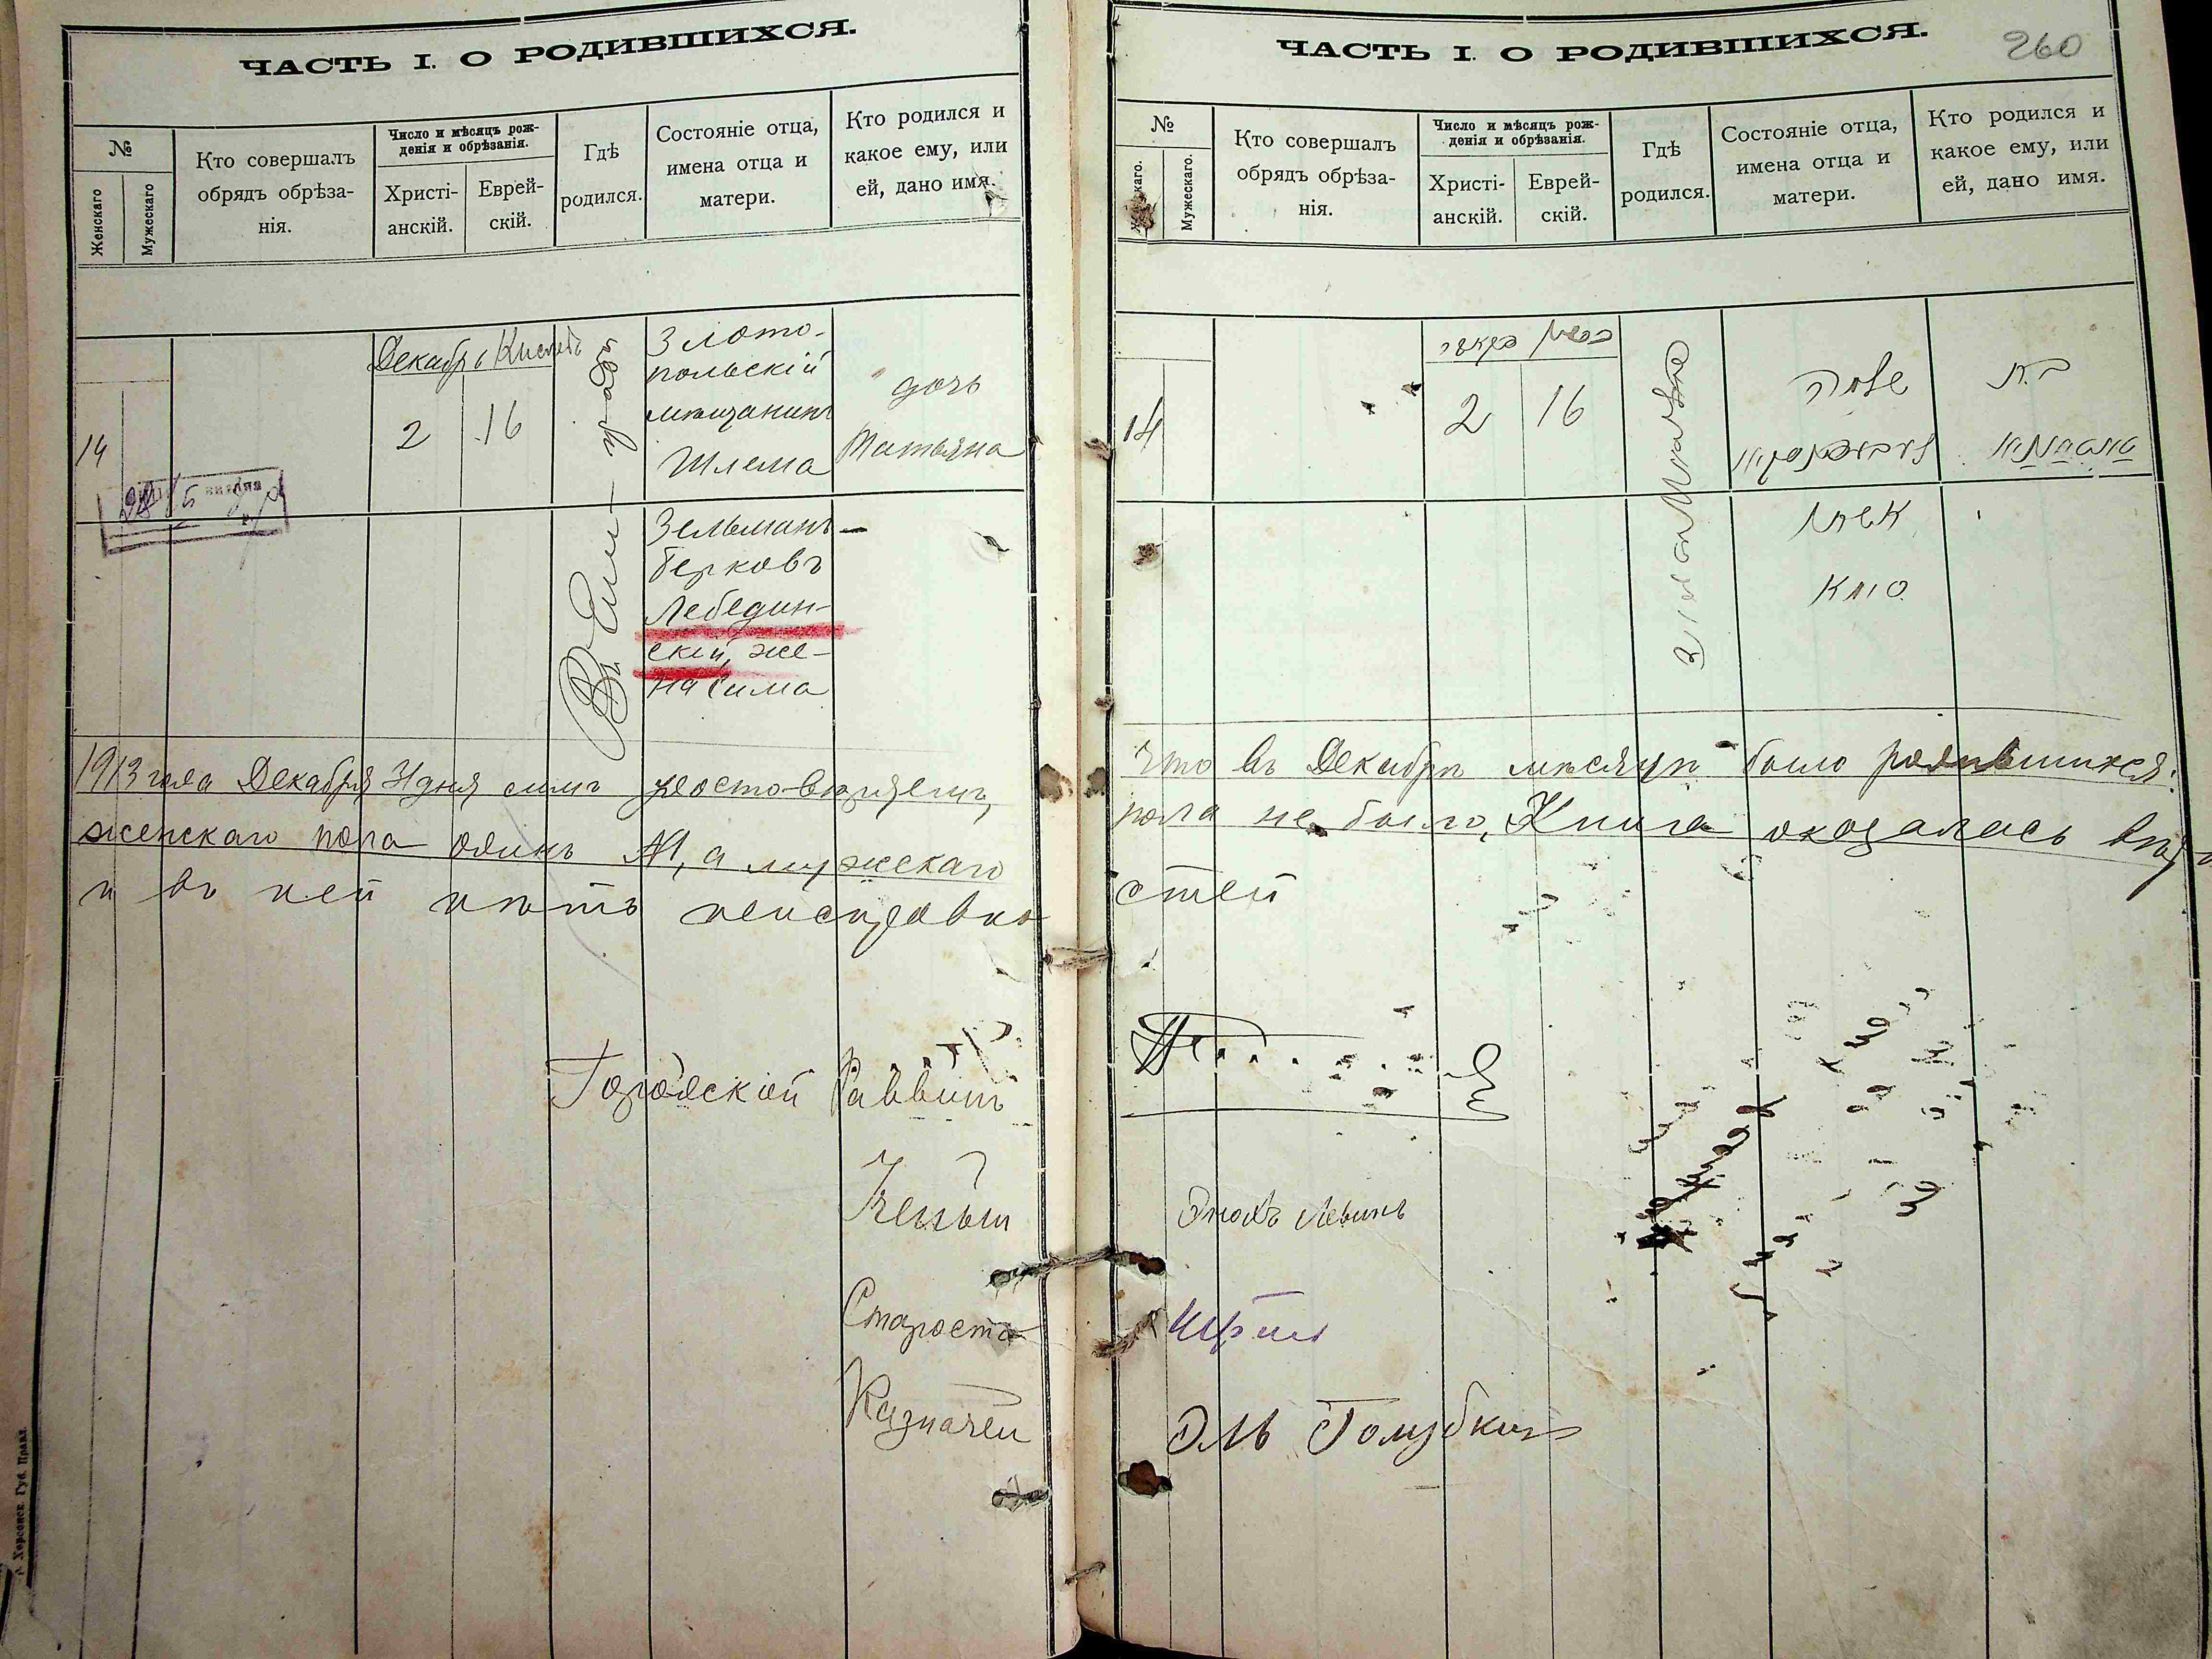 ЧАСТЬ I. О РОДИВШИХСЯ.
№
Женскаго
Мужескаго
Кто совершалъ
обрядъ обрѣза-
нія.
Число и мѣсяцъ рож-
денія и обрѣзанія.
Христі-
анскій.
Еврей-
скій.
Гдѣ
родился.
Состояніе отца,
имена отца и
матери.
Кто родился и
какое ему, или
ей, дано имя.
Декабрь Кислевъ
14
2
16
Злото-
польскій
мѣщанинъ
Шлема
Зельманъ-
Берковъ
Лебедин-
скій, же-
на Сима
дочь
Татьяна
1913 года Декабря 31 дня симъ удостовѣряемъ,
женскаго пола одинъ №1, а мужскаго
и въ ней нѣтъ неисправно
Городской Раввинъ
Ученый
Староста
Казначей
ЧАСТЬ I. О РОДИВШИХСЯ.
260
№
Мужескаго.
Кто совершалъ
обрядъ обрѣза-
нія.
Число и мѣсяцъ рож-
денія и обрѣзанія.
Христі-
анскій.
Еврей-
скій.
Гдѣ
родился.
Состояніе отца,
имена отца и
матери.
Кто родился и
какое ему, или
ей, дано имя.
14
2
16
что въ Декабрѣ мѣсяцѣ было родившихся:
пола не было, Книга оказалась
стей
Энохъ Левинъ
Эль Голубкинъ